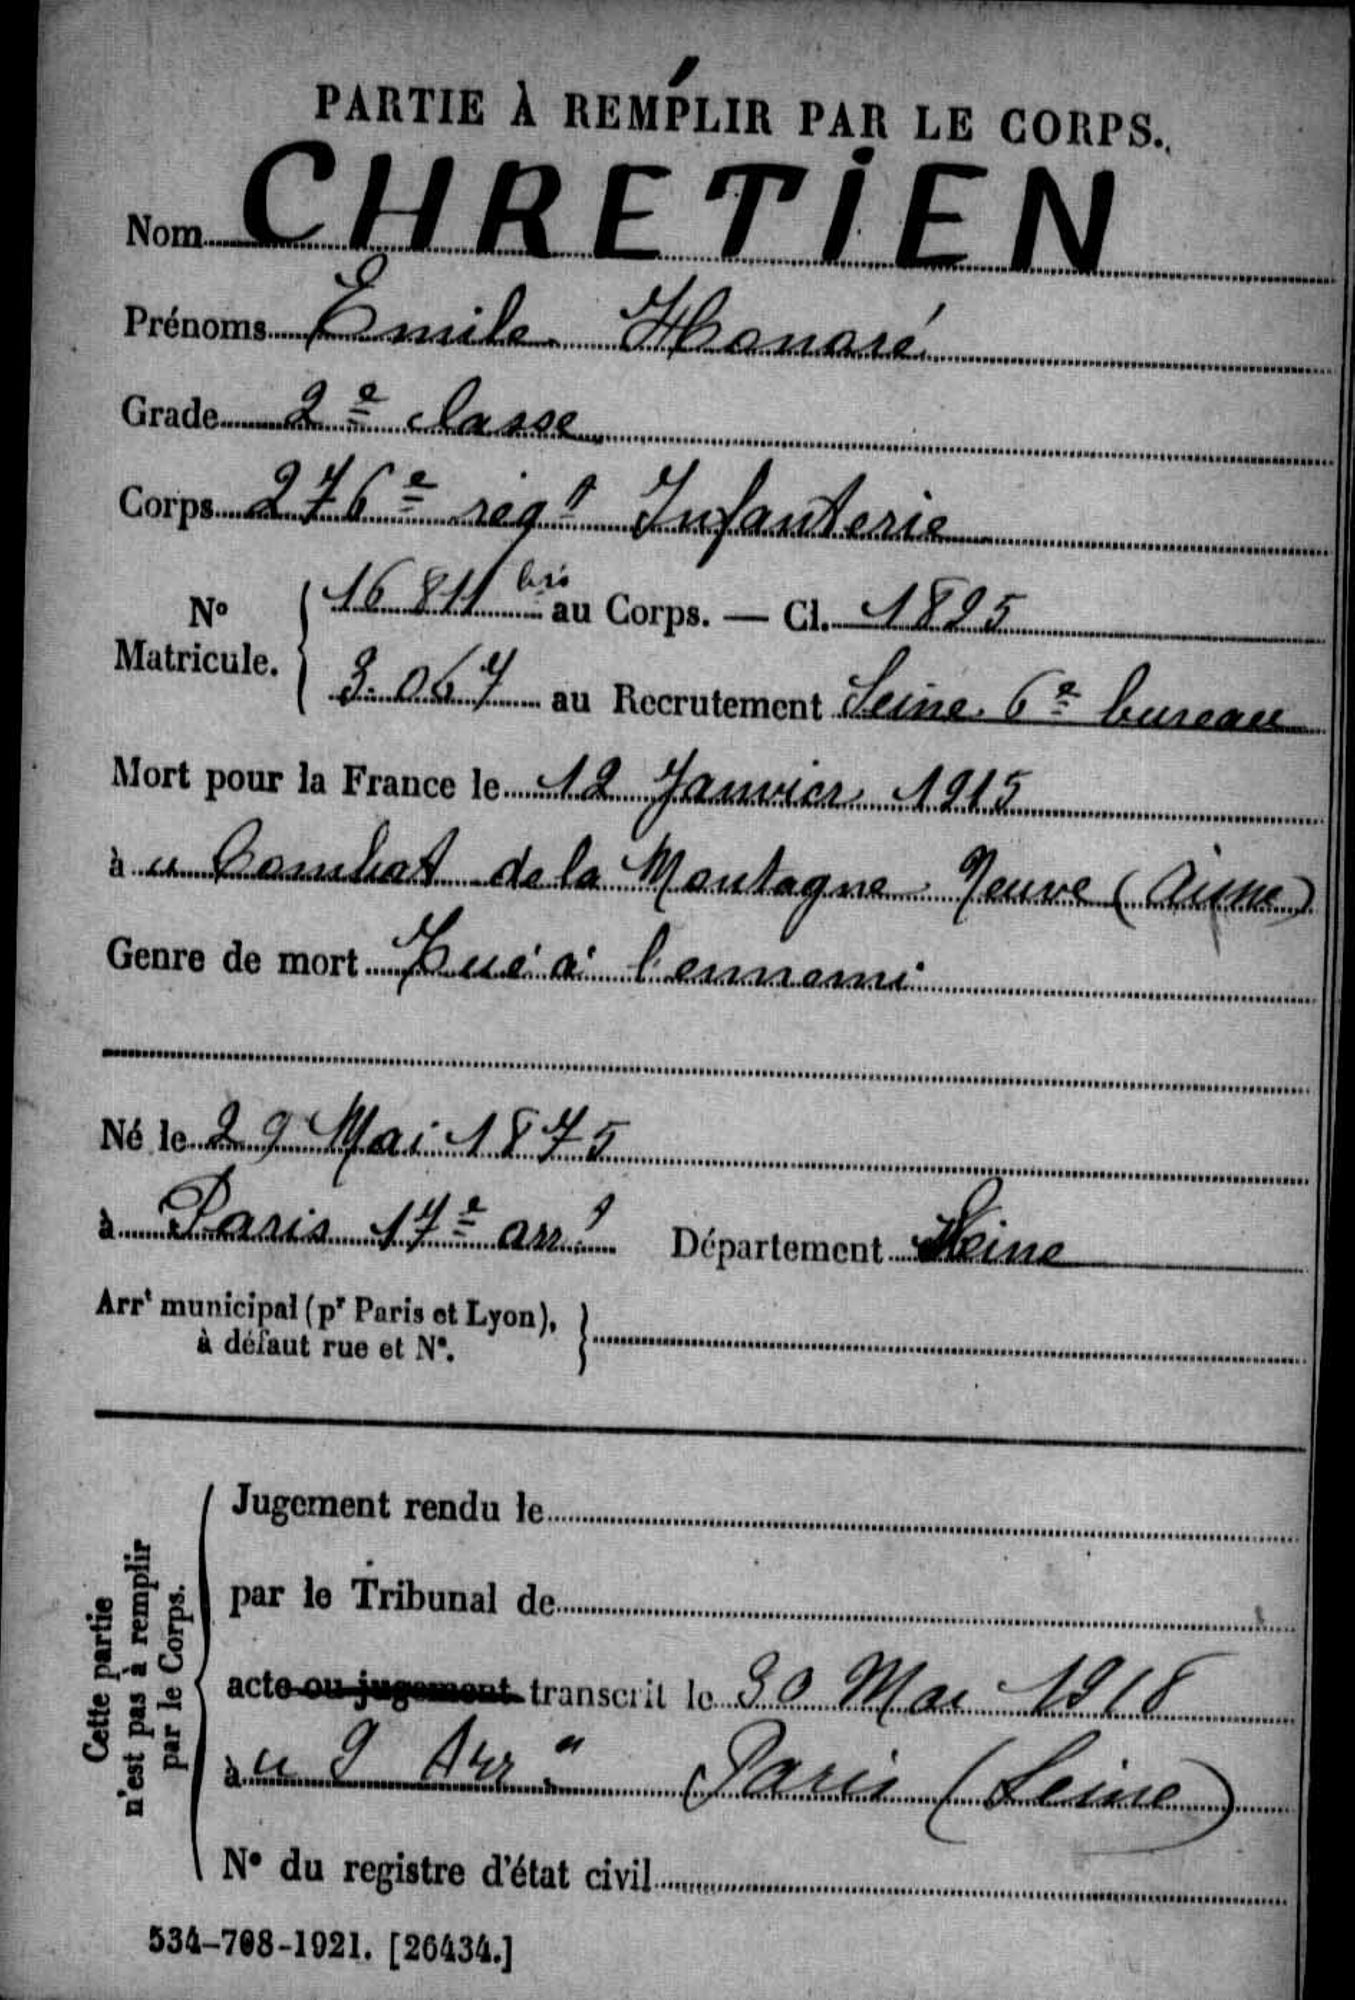 PARTIE À REMPLIR PAR LE CORPS.
Nom CHRETIEN
Prénoms Emile Honoré
Grade 2e classe
Corps 276e régt Infanterie
No Matricule. { 16 811 bis au Corps. — Cl. 1895
3.067 au Recrutement Seine 6e bureau
Mort pour la France le 12 Janvier 1915
à u Combat de la Montagne Neuve (Aisne)
Genre de mort Tué à l'ennemi
Né le 29 Mai 1875
à Paris 17e arrt Département Seine
Arrt municipal (pr Paris et Lyon), à défaut rue et No. }
Cette partie n'est pas à remplir par le Corps.
Jugement rendu le
par le Tribunal de
acte ou jugement transcrit le 30 Mai 1918
à u 9 Arrt Paris (Seine)
No du registre d'état civil
534-708-1921. [26434.]